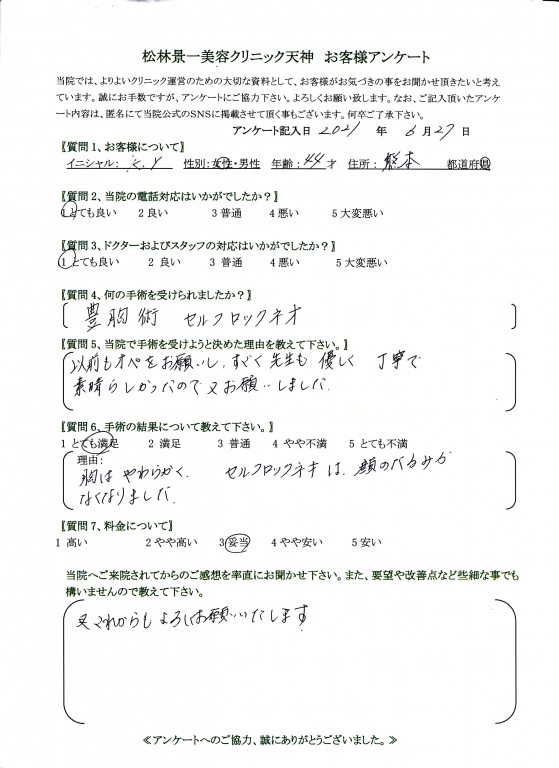 松林景一美容クリニック天神 お客様アンケート
当院では、よりよいクリニック運営のための大切な資料として、お客様がお気づきの事をお聞かせ頂きたいと考え
ています。誠にお手数ですが、アンケートにご協力下さい。よろしくお願い致します。なお、ご記入頂いたアンケ
ート内容は、匿名にて当院公式のSNSに掲載させて頂く事もございます。何卒ご了承下さい。
アンケート記入日 2021 年 6月27日
【質問1、お客様について】
イニシャル: Y 性別:女性・男性 年齢:44才 住所: 熊本 都道府県
【質問2、当院の電話対応はいかがでしたか?】
1とても良い 2良い 3普通 4悪い 5大変悪い
【質問3、ドクターおよびスタッフの対応はいかがでしたか?】
1とても良い 2 良い 3 普通 4悪い 5大変悪い
【質問4、何の手術を受けられましたか?】
豊胸術 セルフロックネオ
【質問5、当院で手術を受けようと決めた理由を教えて下さい。】
以前もオペをお願いし、すごく先生も優しく 丁寧で
素晴らしかったので又お願いしました。
【質問6、手術の結果について教えて下さい。】
1 とても満足 2 満足 3 普通 4 やや不満 5 とても不満
理由:
胸はやわらかく、 セルフロックネオは、顔のたるみが
なくなりました。
【質問7、料金について】
1 高い 2やや高い 3妥当 4やや安い 5安い
当院へご来院されてからのご感想を率直にお聞かせ下さい。また、要望や改善点など些細な事でも
構いませんので教えて下さい。
又これからもよろしくお願いいたします
≪アンケートへのご協力、誠にありがとうございました。≫